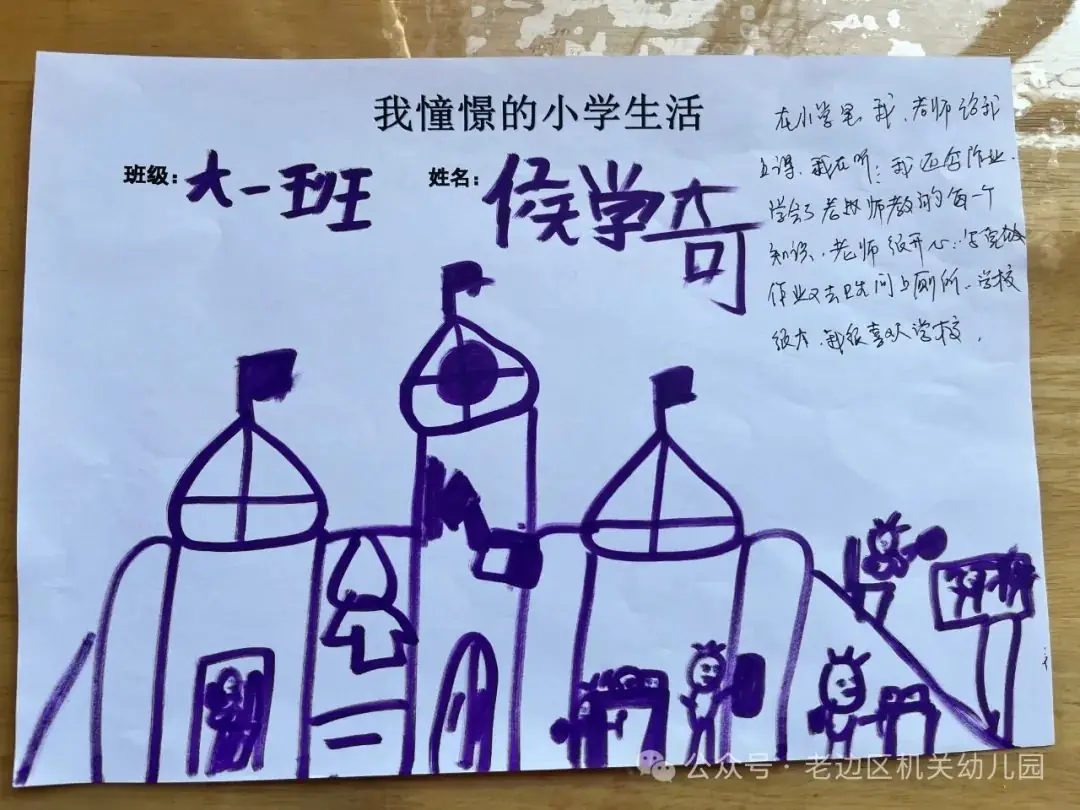 我憧憬的小学生活
班级:大一班 姓名:侯学奇
在小学里,我、老师给我
上课、我在听;我还写作业、
学会了老师教的每一个
知识、老师很开心;写完
作业又去卫生间上厕所、学校
很大、我很喜欢学校。
公众号 · 老边区机关幼儿园